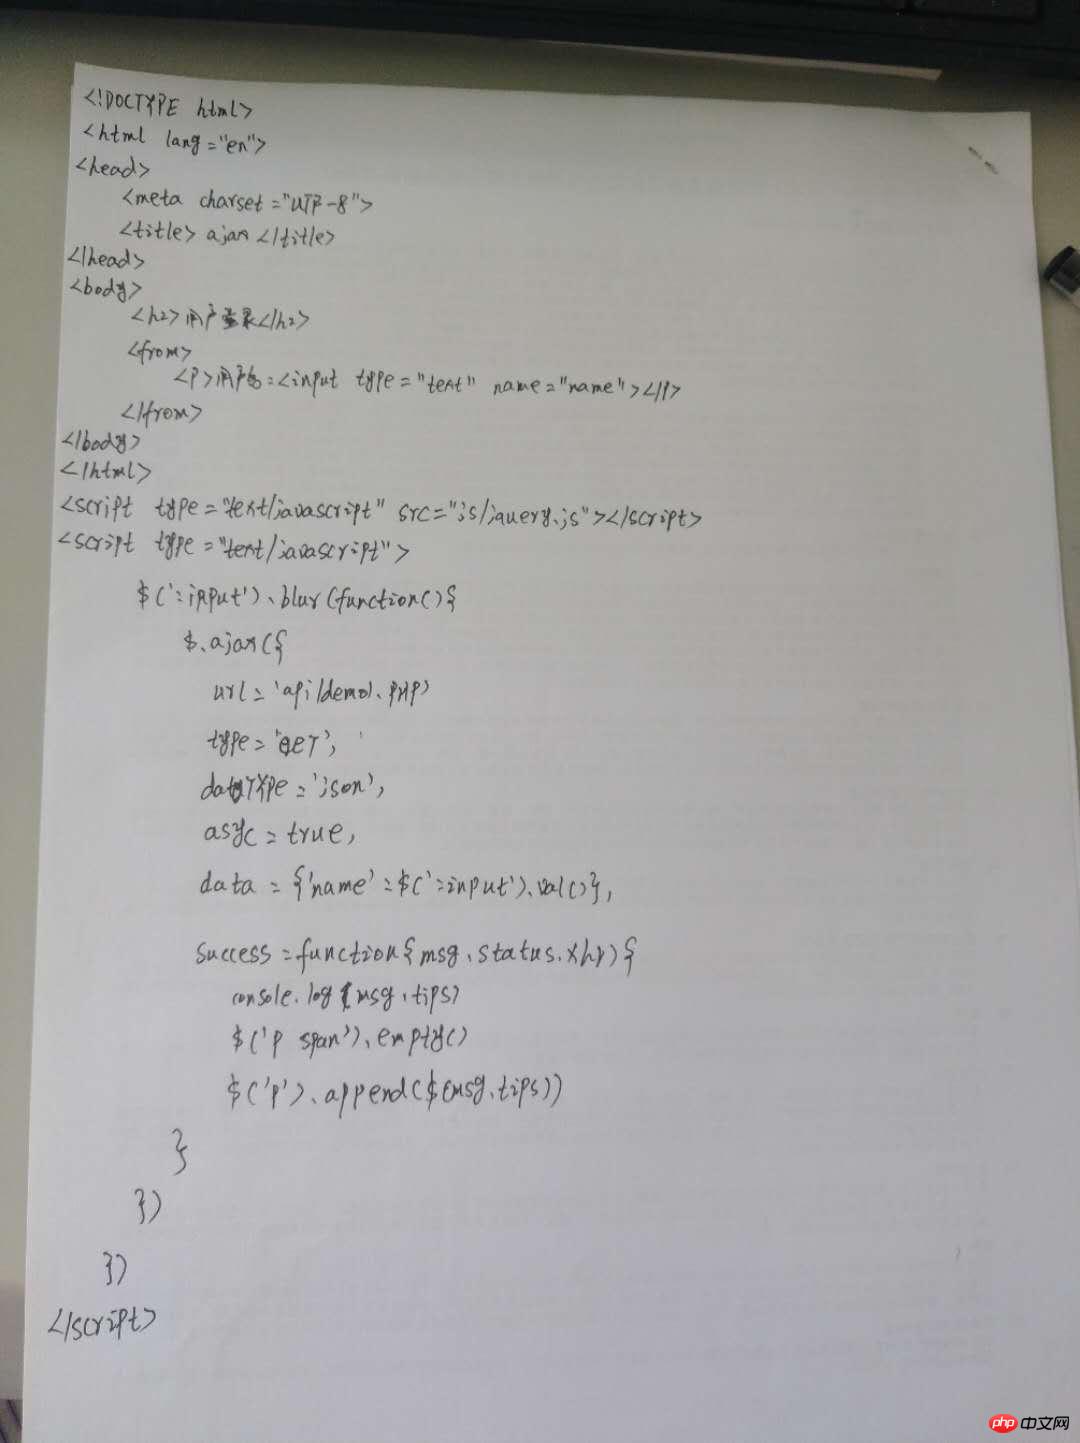 <!DOCTYPE html>
<html lang="en">
<head>
<meta charset="UTF-8">
<title>ajax</title>
</head>
<body>
<h2>用户登录</h2>
<from>
<P>用户名:<input type="text" name="name"></P>
</from>
</body>
</html>
<script type="text/javascript" src="js/jquery.js"></script>
<script type="text/javascript">
$(':input').blur(function(){
$.ajax({
url='api/demo1.PHP'
type='GET',
dataTYPe='json',
asyc=true,
data={'name':$(':input').val()},
success=function{msg.status.xhr){
console.log(msg.tips)
$('p span').empty()
$('p').append($(msg.tips))
}
})
})
</script>
php 中文网